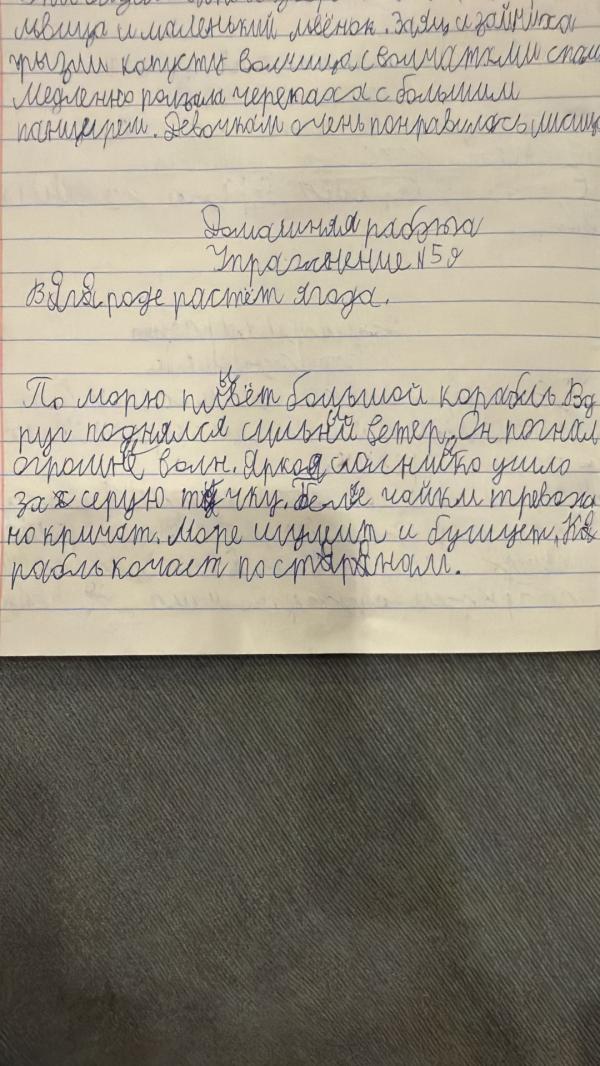 львица и маленький лвёнок. Заяц и зайчиха
грызли капусту волчица с волчатками спали
Медленно ползала черепаха с большим
панцирем. Девочкам очень понравилась лисица
Домашняя работа
Упражнение №59
В ягароде растёт ягода.
По морю плывёт большой корабль Вд
руг поднялся сильный ветер. Он погнал
огромне волн. Яркоя солнышко ушло
за серую тучку. Белые чайки тревож
но кричат. Море шумит и бушует. Ко
рабль качает по старанам.